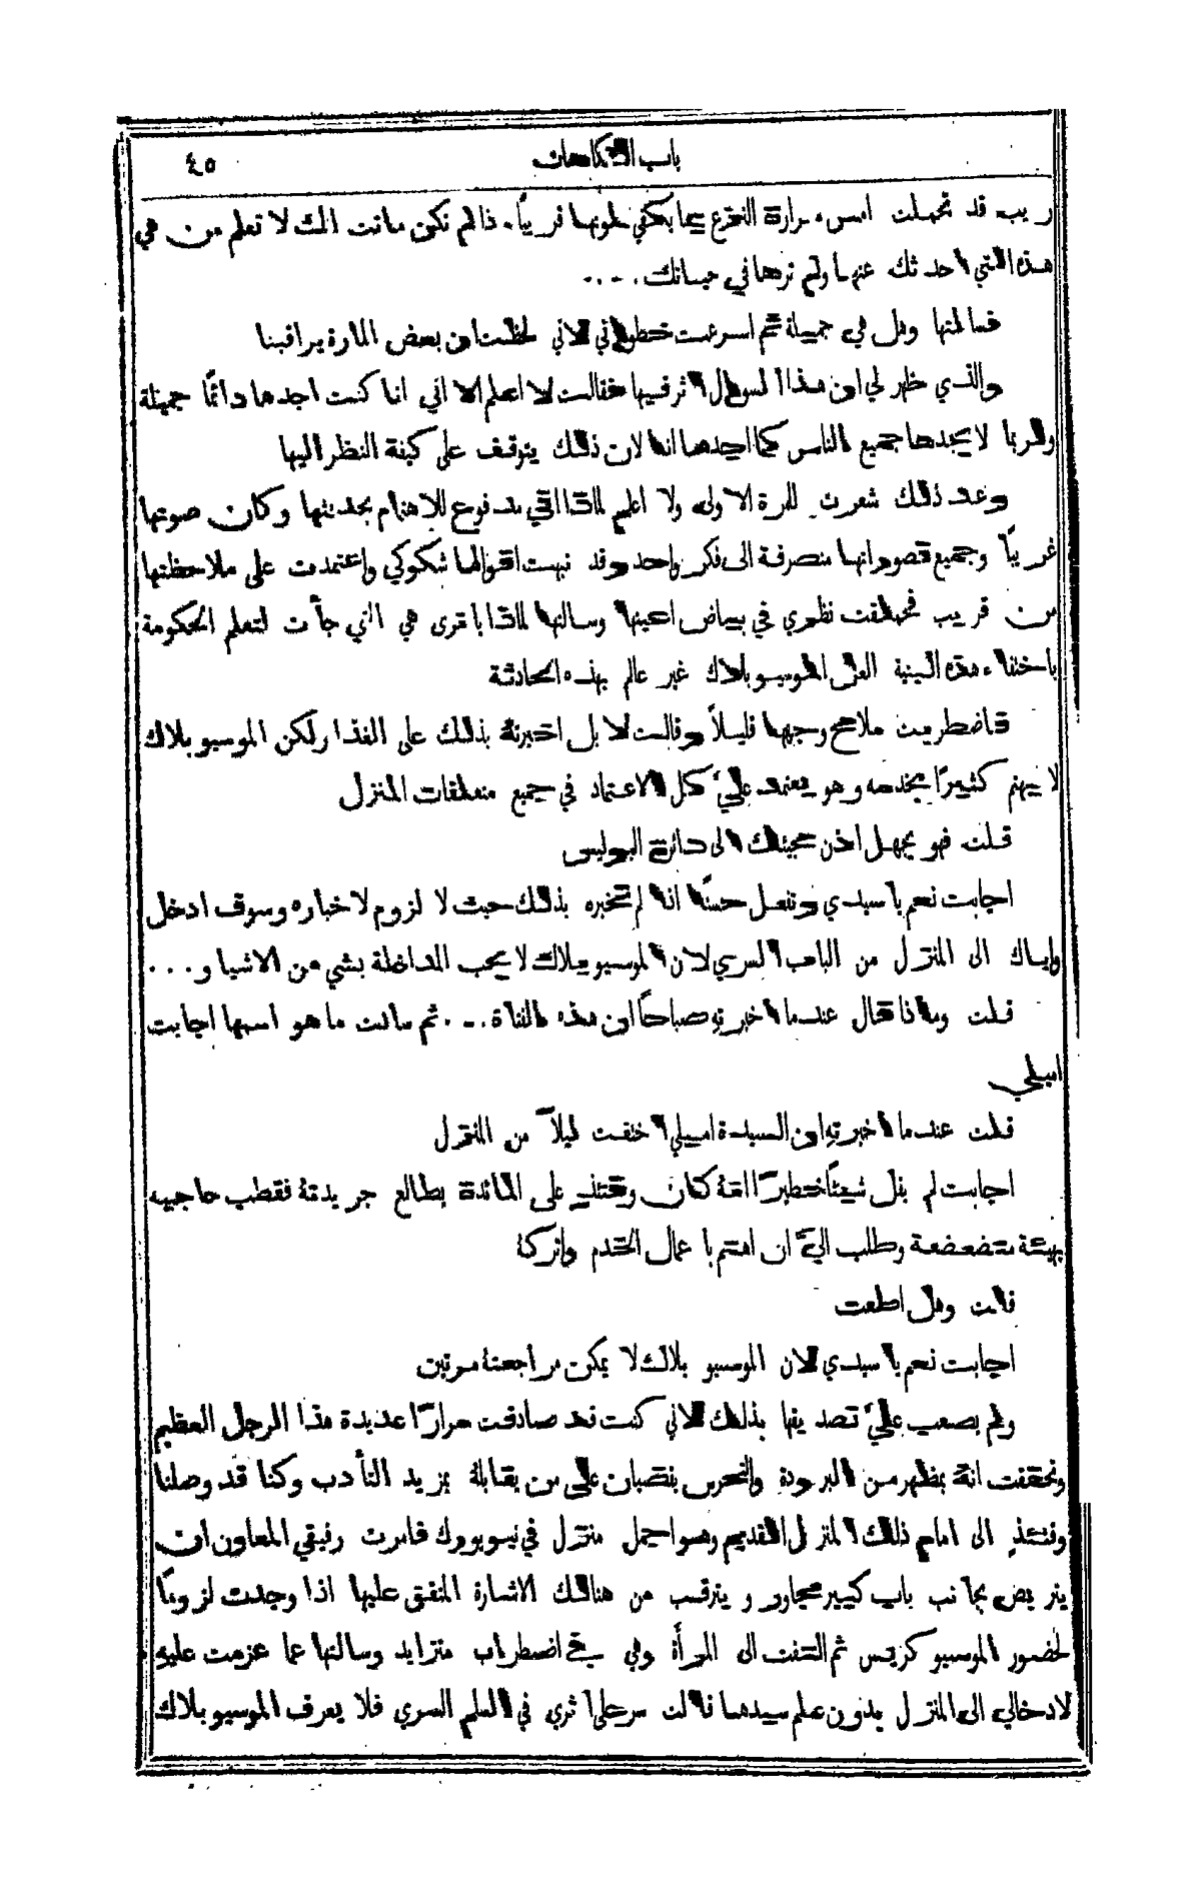 باب الفكاهات ٤٥
ريب قد تحملت امس مرارة النزع بما يكفي لموتها قريبًا. ذا لم تكن ماتت الك لا تعلم من هي
هذه التي احدثك عنها ولم ترها في حياتك. . . .
فسالتها وهل هي جميلة ثم اسرعت خطواتي لاني لحظت ان بعض المارة يراقبنا
والذي ظهر لي ان هذا السوال اثر فيها فقالت لا اعلم الا اني انا كنت اجدها دائمًا جميلة
ولربما لا يجدها جميع الناس كما اجدها انا لان ذلك يتوقف على كيفية النظر اليها
وعند ذلك شعرت للمرة الاولى ولا اعلم لماذا اني مدفوع للاهتمام بحديثها وكان صوتها
غريبًا وجميع تصوراتها منصرفة الى فكر واحد وقد نبهت اقوالها شكوكي واعتمدت على ملاحظتها
من قريب فحملقت نظري في بياض اعينها وسالتها لماذا يا ترى هي التي جأت لتعلم الحكومة
باختفاء هذه البنية العل الموسيو بلاك غير عالم بهذه الحادثة
فاضطربت ملامح وجهها قليلاً وقالت لا بل اخبرته بذلك على الغذا ولكن الموسيو بلاك
لا يهتم كثيرًا بخدمه وهو يعتمد عليَّ كل الاعتماد في جميع متعلقات المنزل
قلت فهو يجهل اذن مجيئك الى دائرة البوليس
اجابت نعم يا سيدي وتفعل حسنًا اذا لم تخبره بذلك حيث لا لزوم لاخباره وسوف ادخل
واياك الى المنزل من الباب السري لان الموسيو بلاك لا يحب المداخلة بشي من الاشيا و . . .
قلت وماذا قال عندما اخبرته صباحًا ان هذه الفتاة . . . ثم سالت ما هو اسمها اجابت
اميلي
قلت عندما اخبرته ان السيدة اميلي اختفت ليلاً من المنزل
اجابت لم يقل شيئًا خطيرًا اذ كان وقتئذٍ على المائدة يطالع جريدته فقطب حاجبيه
بهيئة متضعضعة وطلب اليَّ ان اهتم باعمال الخدم واتركه
قلت وهل اطعت
اجابت نعم يا سيدي لان الموسيو بلاك لا يمكن مراجعته مرتين
ولم يصعب عليَّ تصديقها بذلك لاني كنت قد صادفت مرارًا عديدة هذا الرجل العظيم
وتحققت انه يظهر من البرودة والتحرس يقضيان على من يقابله بمزيد التأدب وكنا قد وصلنا
وقتئذٍ الى امام ذلك المنزل القديم وهو اجمل منزل في نيويورك فامرت رفيقي المعاون ان
يتربص بجانب باب كبير مجاور و يترقب من هنالك الاشارة المتفق عليها اذا وجدت لزومًا
لحضور الموسيو كريس ثم التفت الى المرأة وهي في اضطراب متزايد وسالتها عما عزمت عليه
لادخالي الى المنزل بدون علم سيدها قالت سر على اثري في السلم السري فلا يعرف الموسيو بلاك